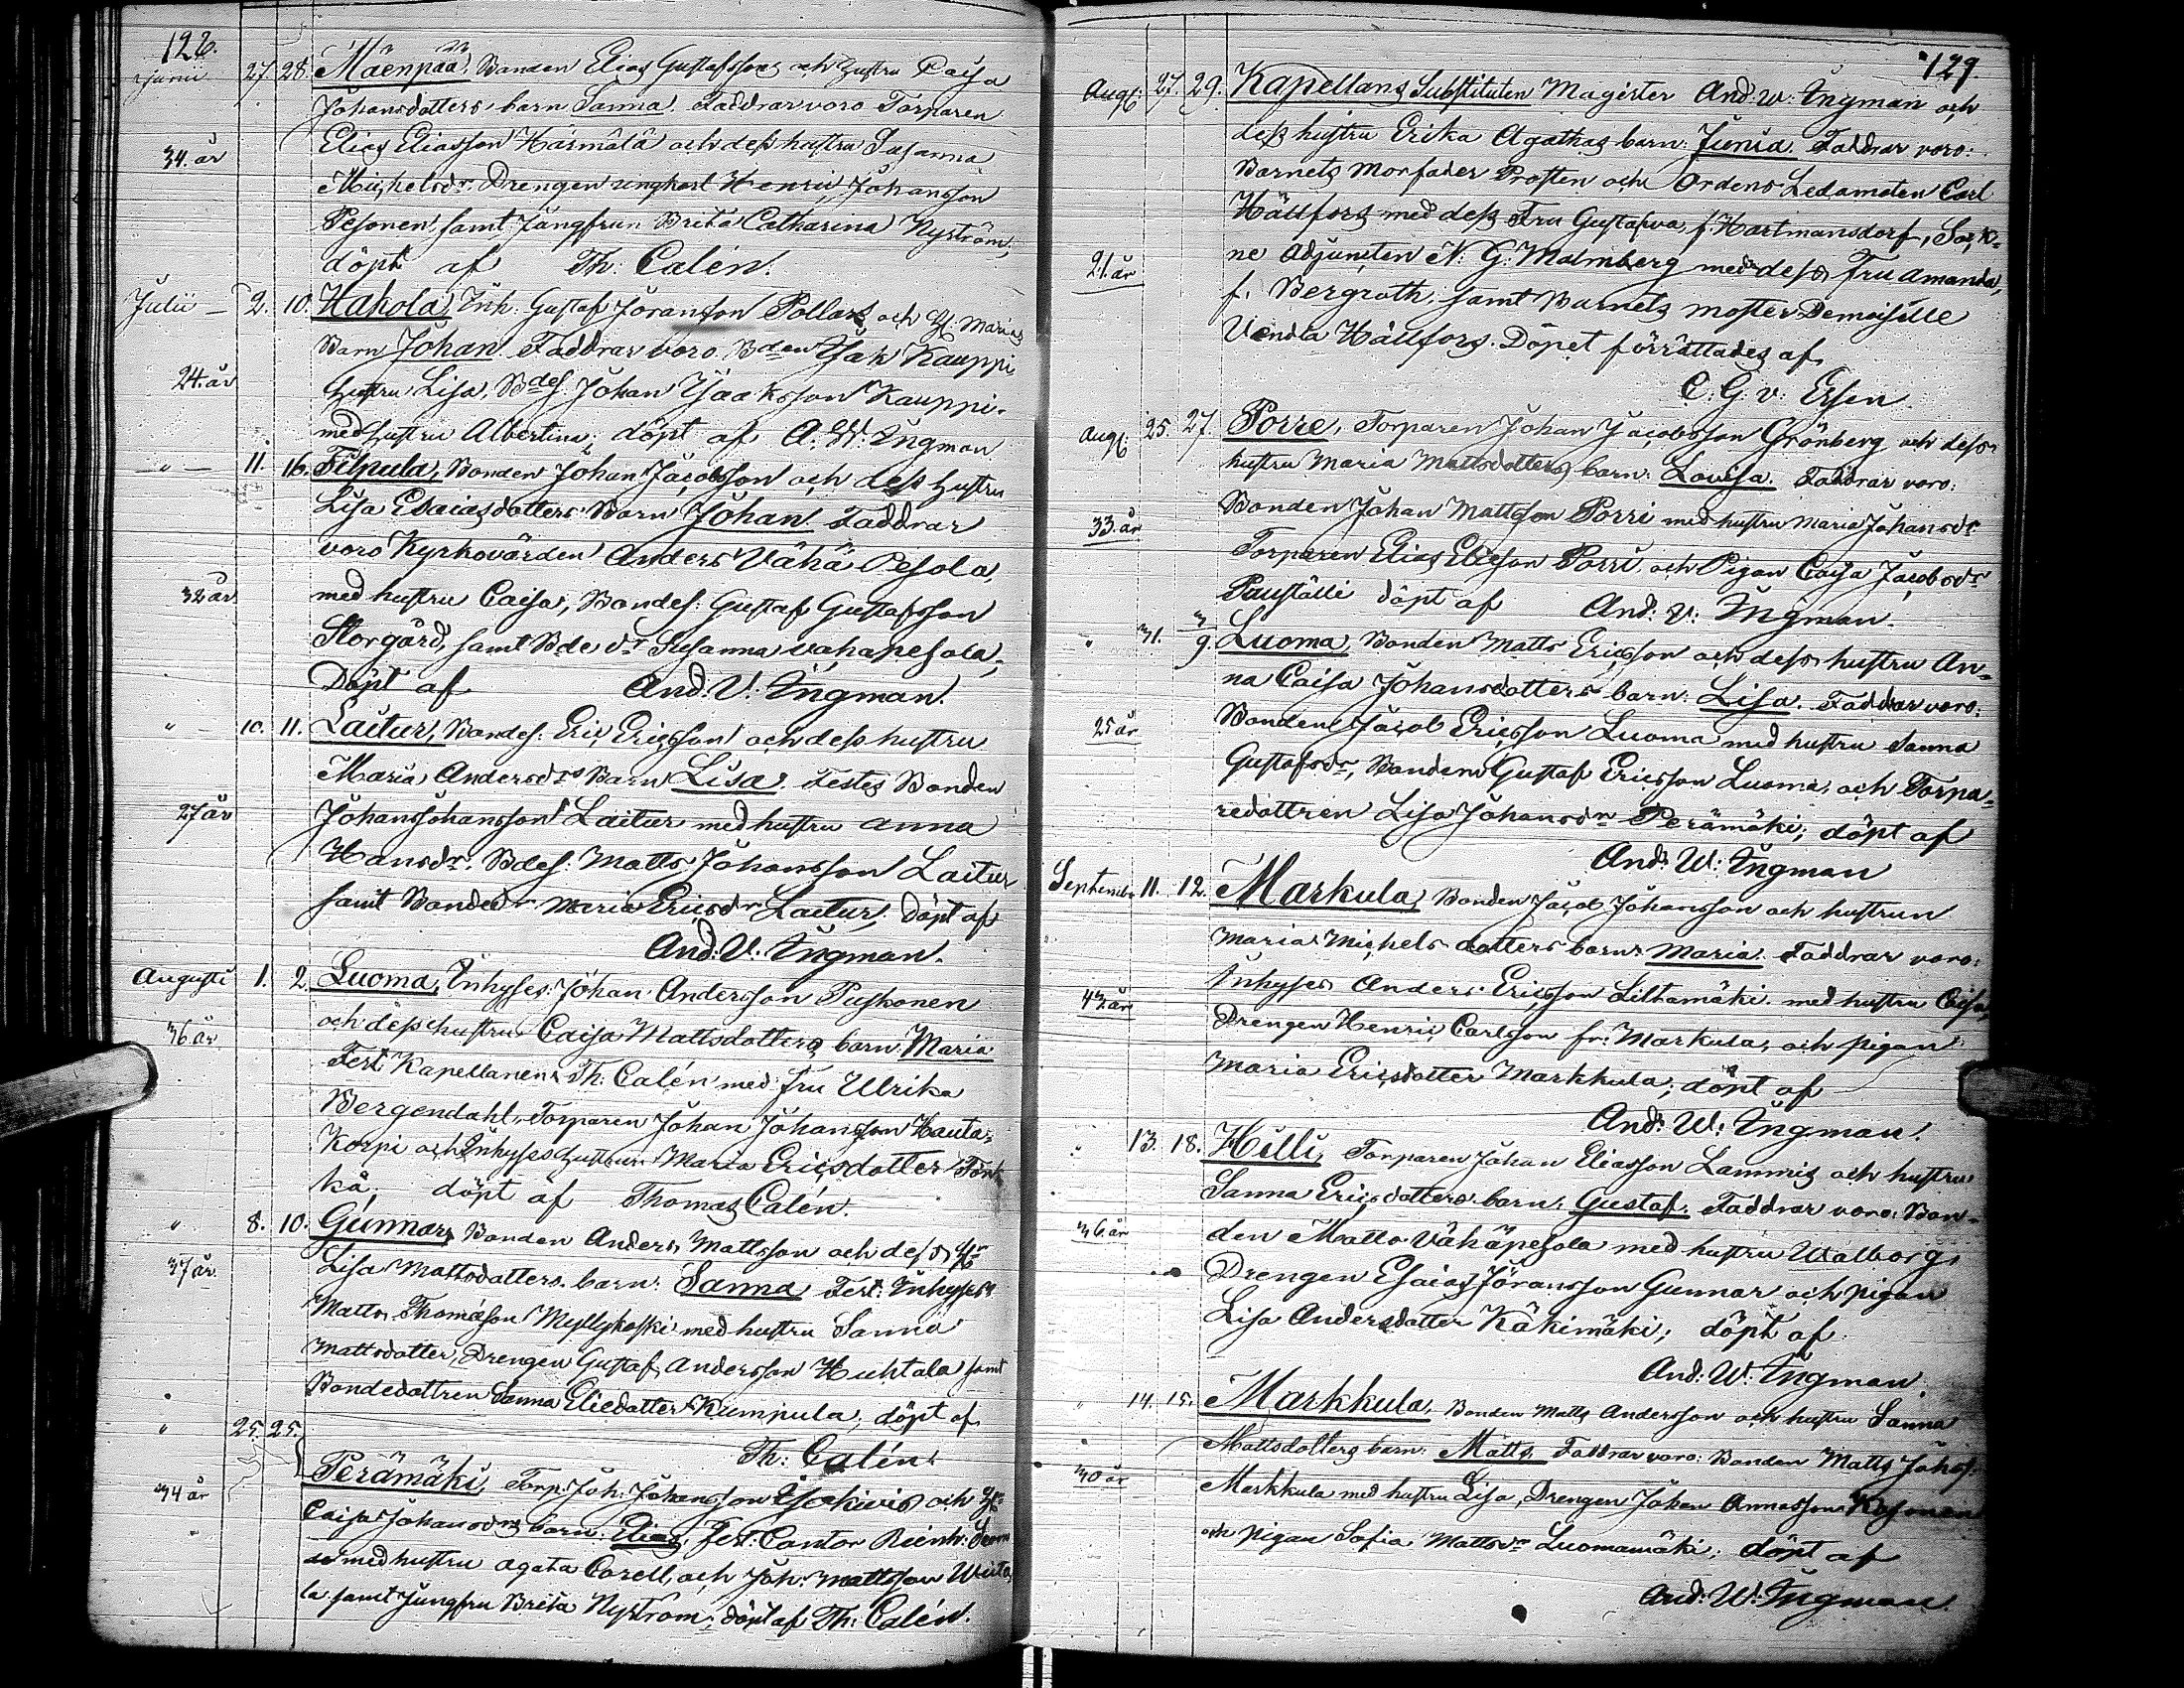 128.
Junii 27. 28. Mäenpää, Bonden Elias Gustafssons och hustru Caisa
Johansdotters barn Sanna. Faddrar voro Torparen
34. år Elias Eliasson Härmälä och dess hustru Susanna
Michelsdr. Drengen ungkarl Henric Johansson
Pesonen, samt Jungfrun Brita Catharina Nyström,
döpt af Th: Calén.
Julii — 2. 10. Hakola, Inh. Gustaf Jöransson Pollars och H. Marias
Barn Johan. Faddrar voro Bden Isak Kauppi
24. år hustru Lisa, Bdes. Johan Isaaksson Kauppi
med hustru Albertina; döpt af A. W. Ingman
— " — 11. 16. Filpula, Bonden Johan Jacobsson och dess hustru
Lisa Esaiasdotters Barn Johan. Faddrar
voro Kyrkovärden Anders Vähä Pesola,
32 år med hustru Caisa, Bondes: Gustaf Gustafsson
Storgård, samt Bde dr Susanna Vähäpesola,
Döpt af And. V. Ingman.
" — 10. 11. Laitur, Bondes: Eric Ericsson och dess hustru
Maria Andersdrs Barn Lisa. Testes Bonden
27 år Johan Johansson Laitur med hustru Anna
Hansdr. Bdes: Matts Johansson Laitur
samt Bondedr Maria Ericsdr Laitur, Döpt af
And. V. Ingman.
Augusti 1. 2. Luoma, Inhyses: Johan Andersson Puskonen
36 år och dess hustru Caisa Mattsdotters barn Maria
Test: Kapellanen Th: Calén med Fru Ulrika
Bergendahl, Torparen Johan Johansson Hauta-
korpi och Inhyses hustrun Maria Ericsdotter
kä, döpt af Thomas Calén.
" 8. 10. Gunnar, Bonden Anders Mattsson och dess H
37 år Lisa Mattsdotters barn: Sanna Test: Inhyses
Matts Thomasson Myllykoski med hustru Sanna
Mattsdotter, Drengen Gustaf Andersson Huhtala samt
Bondedottren Sanna Eliedotter Kumpula; döpt af
" 25. 25. Th: Calén.
Perämäki, Torp. Joh: Johansson och H
34 år Caisa Johansdrs barn: Elias, Test: Cantor
med hustru Agata Corell, och Joh: Mattsson
la samt Jungfru Brita Nyström; döpt af Th: Calén.
129.
Aug: 27. 29. Kapellans Substituten Magister And: W: Ingman och
dess hustru Erika Agathas barn: Junia. Faddrar voro:
Barnets Morfader Prosten och Ordens Ledamoten Carl
Hällfors med dess Fru Gustafva, f. Hartmansdorf, Sock-
21. år ne Adjuncten N: G: Malmberg med dess Fru Amanda,
f. Bergroth, samt Barnets moster Demoiselle
Vendla Hällfors. Döpet förrättades af
C: G: v: Essen
Aug: 25. 27. Porre, Torparen Johan Jacobsson Grönberg och dess
hustru Maria Mattsdotters barn: Lovisa. Faddrar voro:
33. år Bonden Johan Mattsson Porri med hustru Maria Johansdr
Torparen Elias Elieson Porri, och Pigan Caisa Jacobsdr
döpt af And: V: Ingman.
" 31. 3/9 Luoma, Bonden Matts Ericsson och dess hustru An-
na Caisa Johansdotters barn: Lisa. Faddrar voro:
25 år Bonden Jacob Ericsson Luoma med hustru Sanna
Gustafsdr, Bonden Gustaf Ericsson Luoma, och Torpa-
redottren Lisa Johansdr Perämäki; döpt af
And: W: Ingman
September 11. 12. Markula, Bonden Jacob Johansson och hustrun
Maria Michelsdotters barn: Maria. Faddrar voro:
42 år Inhyses Anders Ericsson Liltamäki med hustru Caisa,
Drengen Henric Carlsson fr: Markula, och pigan
Maria Ericsdotter Markkula; döpt af
And: W: Ingman.
" 13. 18. Hilli, Torparen Johan Eliasson Lammis och hustru
Sanna Ericsdotters barn: Gustaf. Faddrar voro: Bon-
36 år den Matts Vähäpesola med hustru Walborg,
Drengen Esaias Jöransson Gunnar och pigan
Lisa Andersdotter Käkimäki; döpt af
And: W. Ingman.
" 14. 15. Markkula, Bonden Matts Andersson och hustru Sanna
Mattsdotters barn: Matts. Faddrar voro: Bonden Matts Johss:
30 år Markkula med hustru Lisa, Drengen Johan
och pigan Sofia Mattsdr Luomamäki; döpt af
And: W: Ingman.